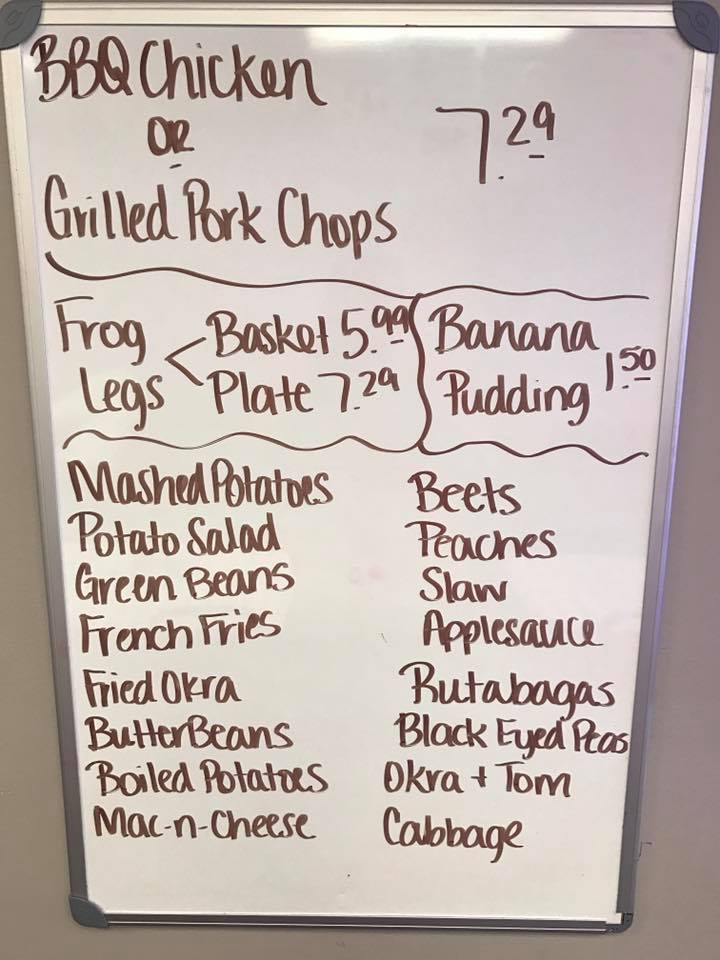 BBQ Chicken
OR
7.29
Grilled Pork Chops
Frog Legs < Basket 5.99
Plate 7.29
Banana
Pudding 1.50
Mashed Potatoes
Potato Salad
Green Beans
French Fries
Fried Okra
Butter Beans
Boiled Potatoes
Mac-n-Cheese
Beets
Peaches
Slaw
Applesauce
Rutabagas
Black Eyed Peas
Okra + Tom
Cabbage